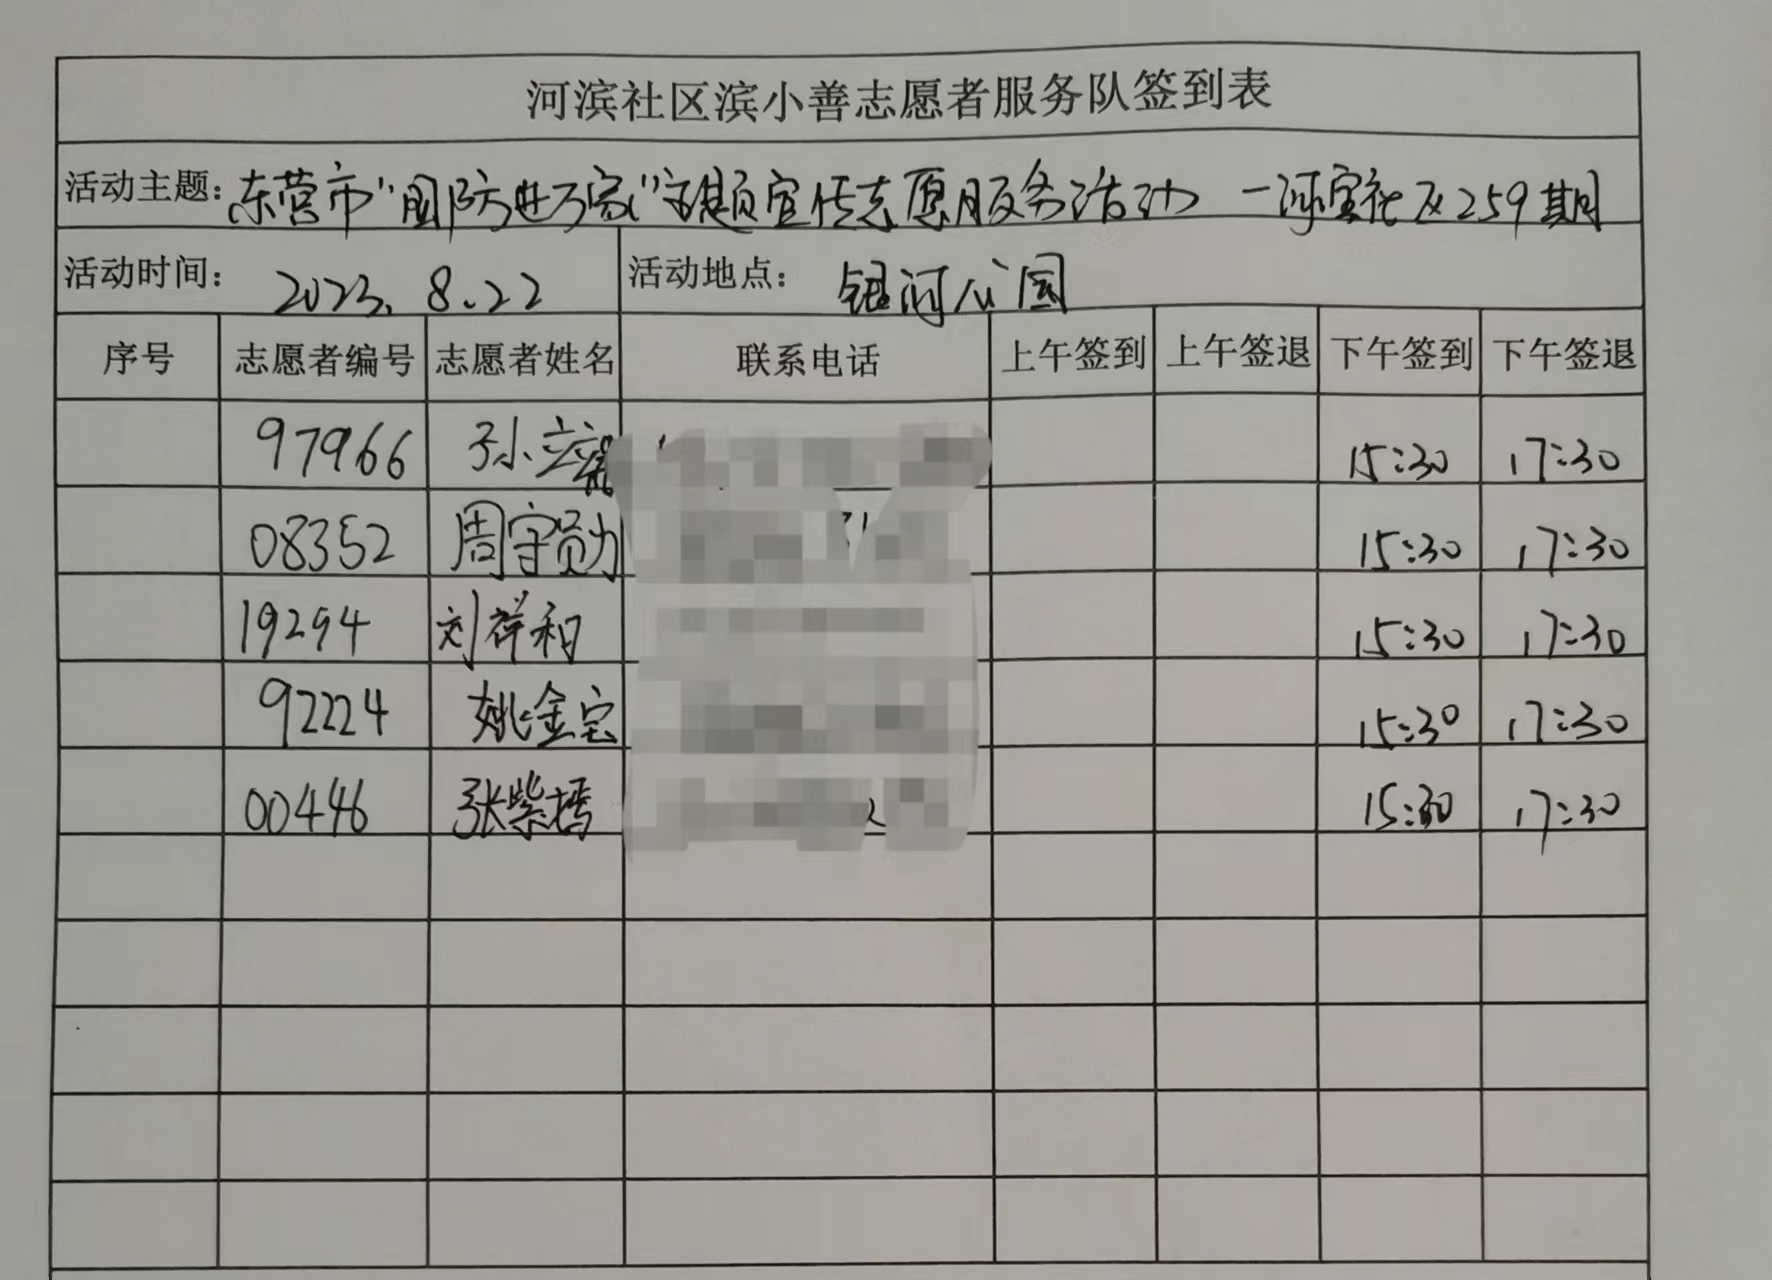 河滨社区滨小善志愿者服务队签到表
活动主题：东营市"国防进万家"主题宣传志愿服务活动 — 河宝社区259期
活动时间： 2023.8.22 活动地点： 银河公园
序号 志愿者编号 志愿者姓名 联系电话 上午签到 上午签退 下午签到 下午签退
97966 孙立 15:30 17:30
08352 周守勋 15:30 17:30
19294 刘祥和 15:30 17:30
92224 姚金宝 15:30 17:30
00446 张紫嫣 15:30 17:30